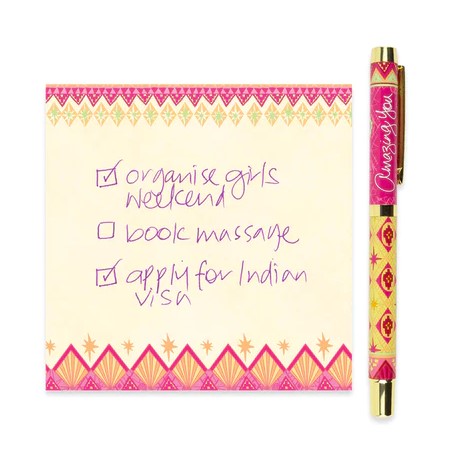 organise girls
weekend
book massage
apply for Indian
visa
Amazing You